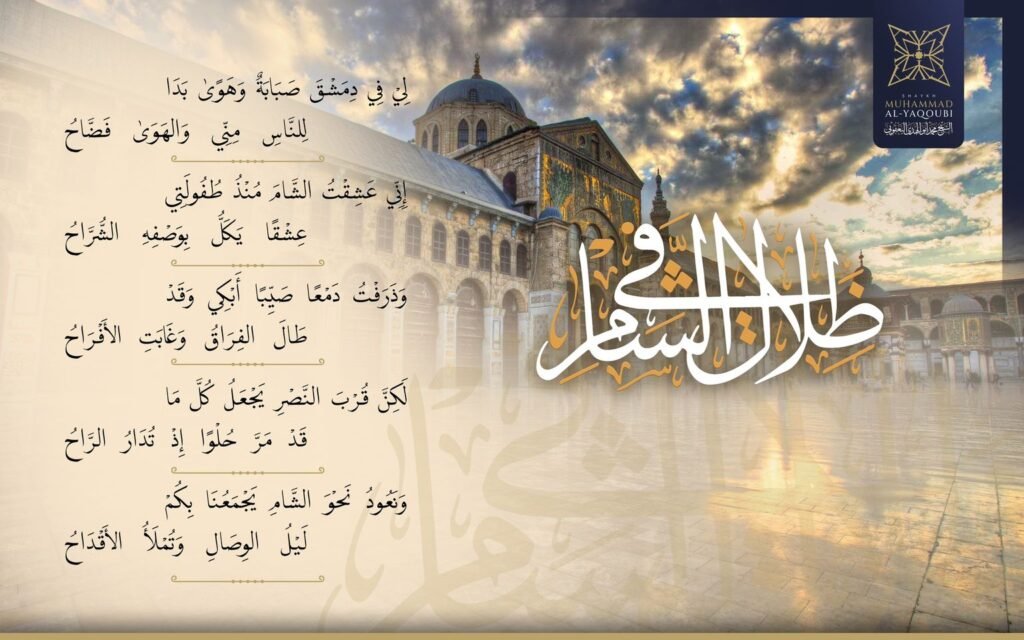 لِيْ فِي دِمَشْقَ صَبَابَةٌ وَهَوًىٰ بَدَا
لِلنَّاسِ مِنِّي وَالهَوَىٰ فَضَّاحُ
إِنِّي عَشِقْتُ الشَّامَ مُنْذُ طُفُولَتِي
عِشْقًا يَكَلُّ بِوَصْفِهِ الشُّرَّاحُ
وَذَرَفْتُ دَمْعًا صَيِّبًا أَبْكِي وَقَدْ
طَالَ الفِرَاقُ وَغَابَتِ الأَفْرَاحُ
لَكِنَّ قُرْبَ النَّصْرِ يَجْعَلُ كُلَّ مَا
قَدْ مَرَّ حُلْوًا إِذْ تُدَارُ الرَّاحُ
وَنَعُودُ نَحْوَ الشَّامِ يَجْمَعُنَا بِكُمْ
لَيْلُ الوِصَالِ وَتُمْلَأُ الأَقْدَاحُ
في ظِلالِ الشَّامِ
SHAYKH
MUHAMMAD
AL-YAQOUBI
الشيخ محمد أبو الهدى اليعقوبي